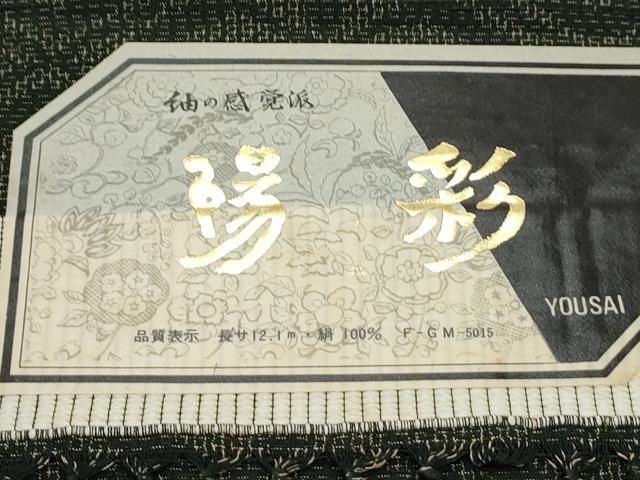 紬の感覚派
陽彩
YOUSAI
品質表示 長サ12.1m・絹 100% F-GM-5015